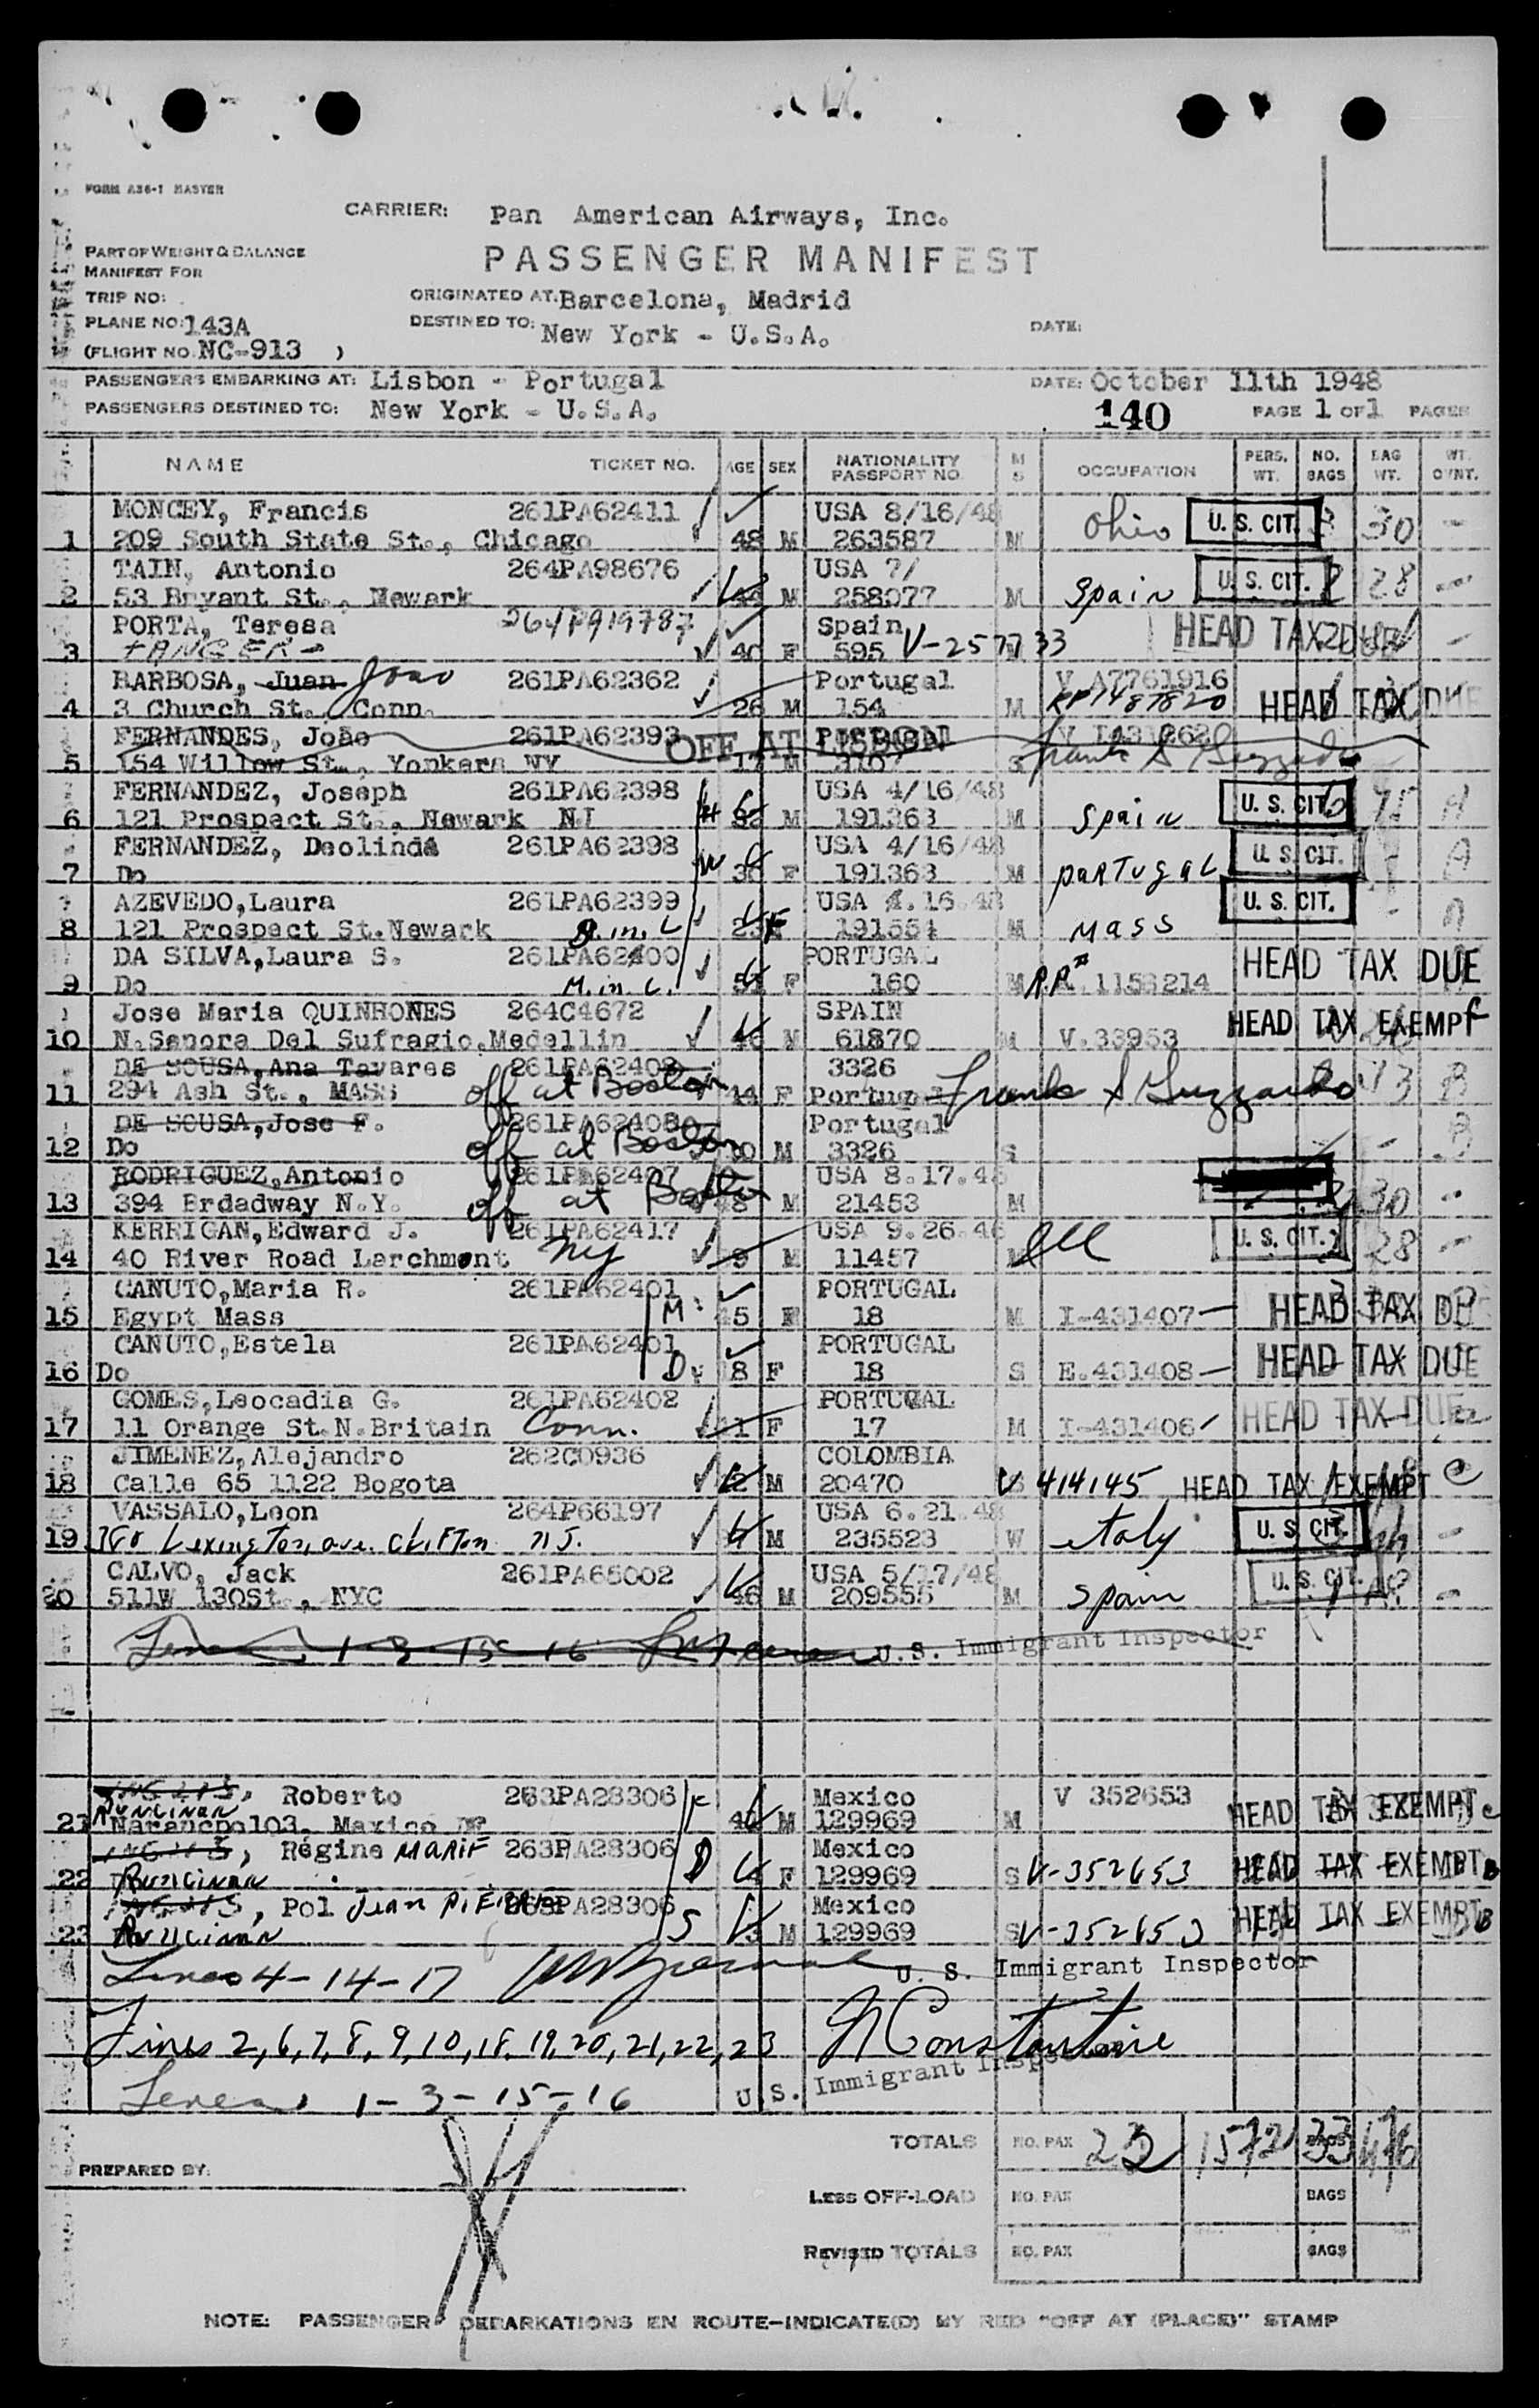 FORM A36-1 MASTER
CARRIER: Pan American Airways, Inc.
PART OF WEIGHT & BALANCE
MANIFEST FOR
PASSENGER MANIFEST
TRIP NO:
ORIGINATED AT: Barcelona, Madrid
PLANE NO: 143A
DESTINED TO: New York - U.S.A.
DATE:
(FLIGHT NO. NC-913 )
PASSENGERS EMBARKING AT: Lisbon - Portugal
DATE: October 11th 1948
PASSENGERS DESTINED TO: New York - U.S.A.
140 PAGE 1 OF 1 PAGES
NAME TICKET NO. AGE SEX NATIONALITY PASSPORT NO. M S OCCUPATION PERS. WT. NO. BAGS BAG WT. WT. CVNT.
MONCEY, Francis 261PA62411 USA 8/16/48 Ohio U. S. CIT. 30 -
1 209 South State St., Chicago 48 M 263587 M
TAIN, Antonio 264PA98676 USA 7/ Spain U. S. CIT. 28 -
2 53 Bryant St., Newark M 258077 M
PORTA, Teresa 264P919787 Spain V-257733 HEAD TAX DUE -
3 TANGER - 40 F 595
BARBOSA, Juan Joao 261PA62362 Portugal V A7761916 HEAD TAX DUE
4 3 Church St., Conn. 26 M 154 M RP1487820
FERNANDES, João 261PA62393 OFF AT LISBON Portugal
5 154 Willow St., Yonkers NY 17 M S Frank S Guzzardo
FERNANDEZ, Joseph 261PA62398 USA 4/16/48 Spain U. S. CIT. A
6 121 Prospect St., Newark NJ H M 191363 M
FERNANDEZ, Deolinda 261PA62398 USA 4/16/48 Portugal U. S. CIT. A
7 Do W F 191363 M
AZEVEDO,Laura 261PA62399 USA 16.48 Mass U. S. CIT. - A
8 121 Prospect St.Newark 23 F 191554 M
DA SILVA,Laura S. 261PA62400 PORTUGAL HEAD TAX DUE
9 Do M.in.L. F 160 M R.P.# 1158214
Jose Maria QUINHONES 264C4672 SPAIN HEAD TAX EXEMPT
10 N.Senora Del Sufragio.Medellin M 61870 M V.33953
DE SOUSA,Ana Tavares 3326 B
11 294 Ash St., MASS off at Boston 44 F Portugal Frank S Guzzardo
DE SOUSA,Jose F. Portugal - B
12 Do off at Boston M 3326 S
RODRIGUEZ,Antonio 261PA62407 USA 8.17.48 30 -
13 394 Brdadway N.Y. off at Boston M 21453 M
KERRIGAN,Edward J. 261PA62417 USA 9.26.46 Ill U. S. CIT. 28 -
14 40 River Road Larchmont NY M 11457
CANUTO,Maria R. 261PA62401 PORTUGAL HEAD TAX DUE
15 Egypt Mass M 45 F 18 M I-431407
CANUTO,Estela 261PA62401 PORTUGAL HEAD TAX DUE
16 Do D 18 F 18 S E.431408
GOMES,Leocadia G. 261PA62402 PORTUGAL HEAD TAX DUE
17 11 Orange St.N.Britain Conn. F 17 M I-431406
JIMENEZ,Alejandro 262C0936 COLOMBIA
18 Calle 65 1122 Bogota M 20470 V 414145 HEAD TAX EXEMPT C
VASSALO,Leon 264P66197 USA 6.21.48 U. S. CIT. -
19 160 Lexington ave. Clifton NJ. M 235523 W Italy
CALVO, Jack 261PA65002 USA 5/17/48 U. S. CIT. -
20 511W 130St., NYC 46 M 209555 M Spain
Lines 1-3-15-16 U.S. Immigrant Inspector
Roberto 263PA28306 Mexico V 352653 HEAD TAX EXEMPT C
21 Runcinan Naranepol03, Maxico DF M 129969 M
Régine MARIE 263PA28306 D Mexico
22 Runcinan F 129969 S V-352653 HEAD TAX EXEMPT B
, Pol Jean PiErre 263PA28306 Mexico HEAD TAX EXEMPT B
23 Runcinan S M 129969 S V-352653
Lines 4-14-17 U. S. Immigrant Inspector
Lines 2,6,7,8,9,10,18,19,20,21,22,23 N Constantine
Lines 1-3-15-16 U.S. Immigrant Inspector
TOTALS NO. PAX 22 1572 BAGS 33 476
PREPARED BY:
LESS OFF-LOAD NO. PAX BAGS
REVISED TOTALS NO. PAX BAGS
NOTE: PASSENGER DEBARKATIONS EN ROUTE-INDICATE(D) BY RED "OFF AT (PLACE)" STAMP